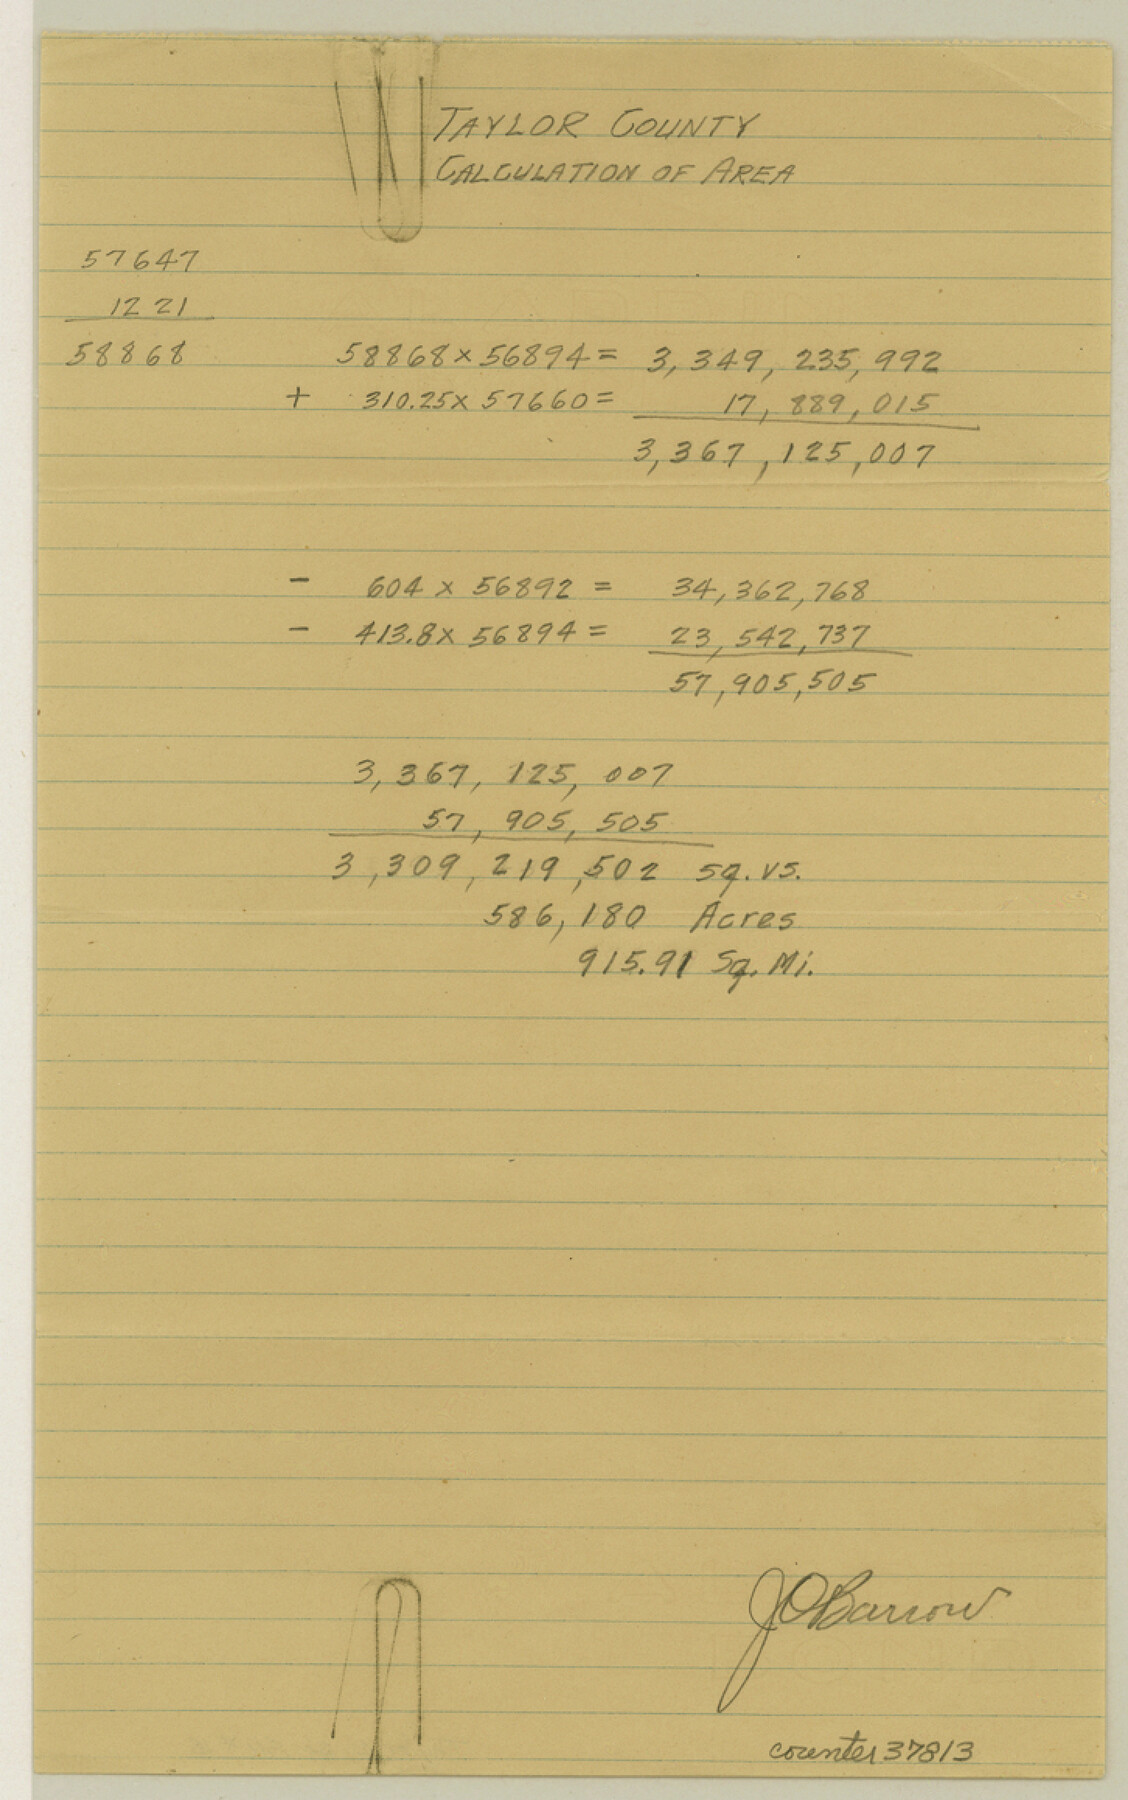 TAYLOR COUNTY
CALCULATION OF AREA
57647
1221
58868
58868 x 56894 = 3,349,235,992
+ 310.25 x 57660 = 17,889,015
3,367,125,007
- 604 x 56892 = 34,362,768
- 413.8 x 56894 = 23,542,737
57,905,505
3,367,125,007
57,905,505
3,309,219,502 sq. vs.
586,180 Acres
915.91 Sq. Mi.
JOBarrow
counter 37813